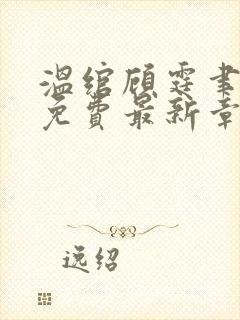 温绾顾霆聿
免费最新章
逸绍